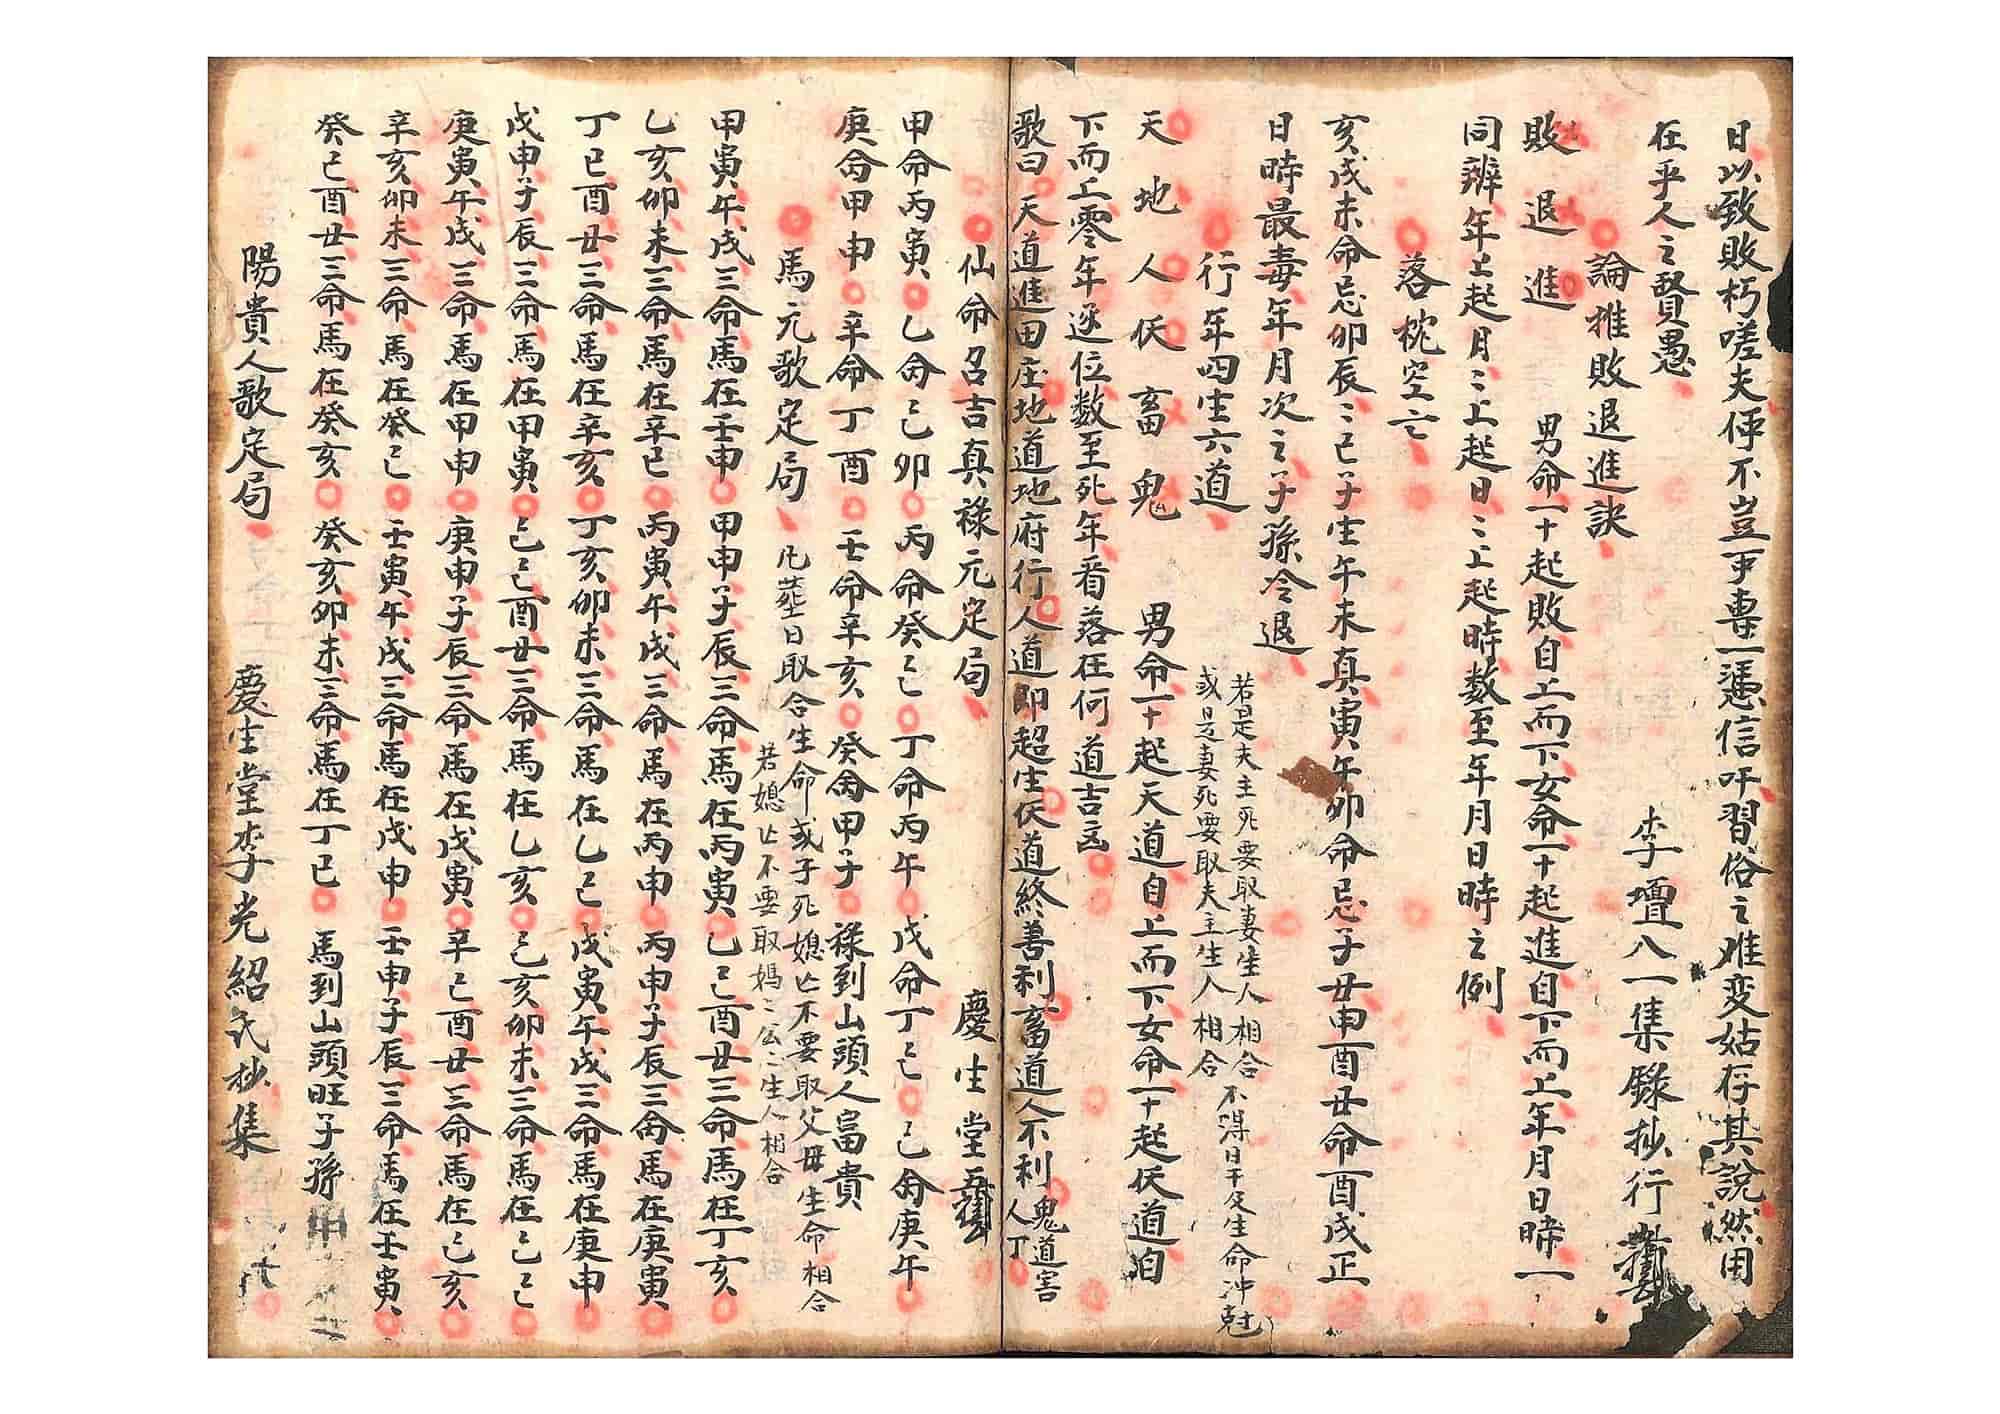 日以致敗朽嗟夫伊不豈專一憑信吁習俗之难変姑存其說然用
在乎人之賢愚
李壇八一集錄抄行
論推敗退進訣
敗退進 男命一十起敗自上而下女命一十起進自下而上年月日時一
同辨年上起月〻上起日〻上起時数至年月日時之例
落枕空亡
亥戌未命忌卯辰〻巳子生午未真寅午卯命忌子丑申酉丑命酉戌正
日時最毒年月次之子孫冷退
若是夫主死要取妻生人相合
或是妻死要取夫主生人相合
不得日干支生命冲尅
行年四生六道
天地人仸畜鬼 男命一十起天道自上而下女命一十起仸道泊
下而上零年逆位数至死年看落在何道吉凶
歌曰天道進田庄地道地府行人道即超生仸道終善利畜道人不利鬼道害
人丁
仙命召吉真祿元定局 慶生堂
甲命丙寅乙命己卯丙命癸巳丁命丙午戊命丁巳己命庚午
庚命甲申辛命丁酉壬命辛亥癸命甲子祿到山頭人富貴
馬元歌定局 凡葬日取合生命或子死媳亡不要取父毋生命相合
若媳亡不要取媽〻公〻生人相合
甲寅午戌三命馬在壬申甲申子辰三命馬在丙寅乙巳酉丑三命馬在丁亥
乙亥卯未三命馬在辛巳丙寅午戌三命馬在丙申丙申子辰三命馬在庚寅
丁巳酉丑三命馬在辛亥丁亥卯未三命馬在乙巳戊寅午戌三命馬在庚申
戊申子辰三命馬在甲寅己巳酉丑三命馬在乙亥己亥卯未三命馬在己巳
庚寅午戌三命馬在甲申庚申子辰三命馬在戊寅辛巳酉丑三命馬在己亥
辛亥卯未三命馬在癸巳壬寅午戌三命馬在戊申壬申子辰三命馬在壬寅
癸巳酉丑三命馬在癸亥癸亥卯未三命馬在丁巳馬到山頭旺子孫
陽貴人歌定局 慶生堂李光紹氏抄集